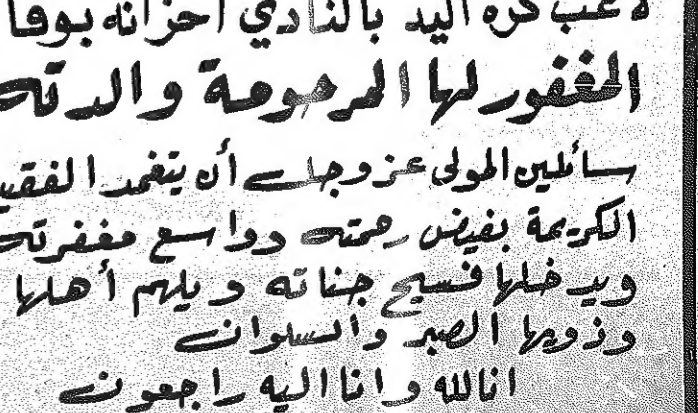 لاعب كرة اليد بالنادي أحزانه بوفا
المغفور لها المرحومة والدته
سائلين المولى عز وجل أن يتغمد الفقي
الكريمة بفيض رحمته وواسع مغفرته
ويدخلها فسيح جناته ويلهم أهلها
وذويها الصبر والسلوان
انالله وانا اليه راجعون